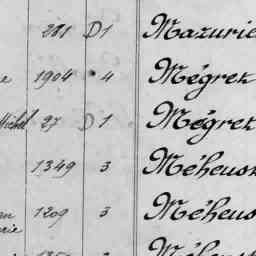 281 D 1 Mazurie
e 1904 4 Mégret
Michel 27 D 1 Mégret
1349 3 Méheus
an 1209 3 Méheus
rie